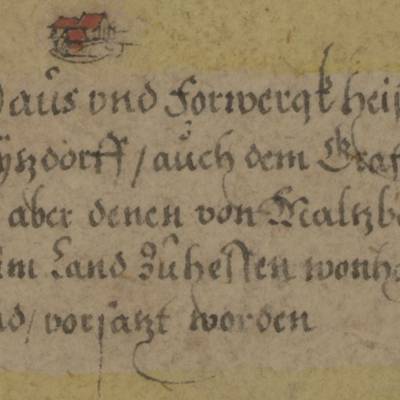 Haus vnd Forwergk heis
ÿtzdorff / auch dem Graf
aber denen von Maltzb
im Land zu hessen wonh
nd / vorsatzt worden